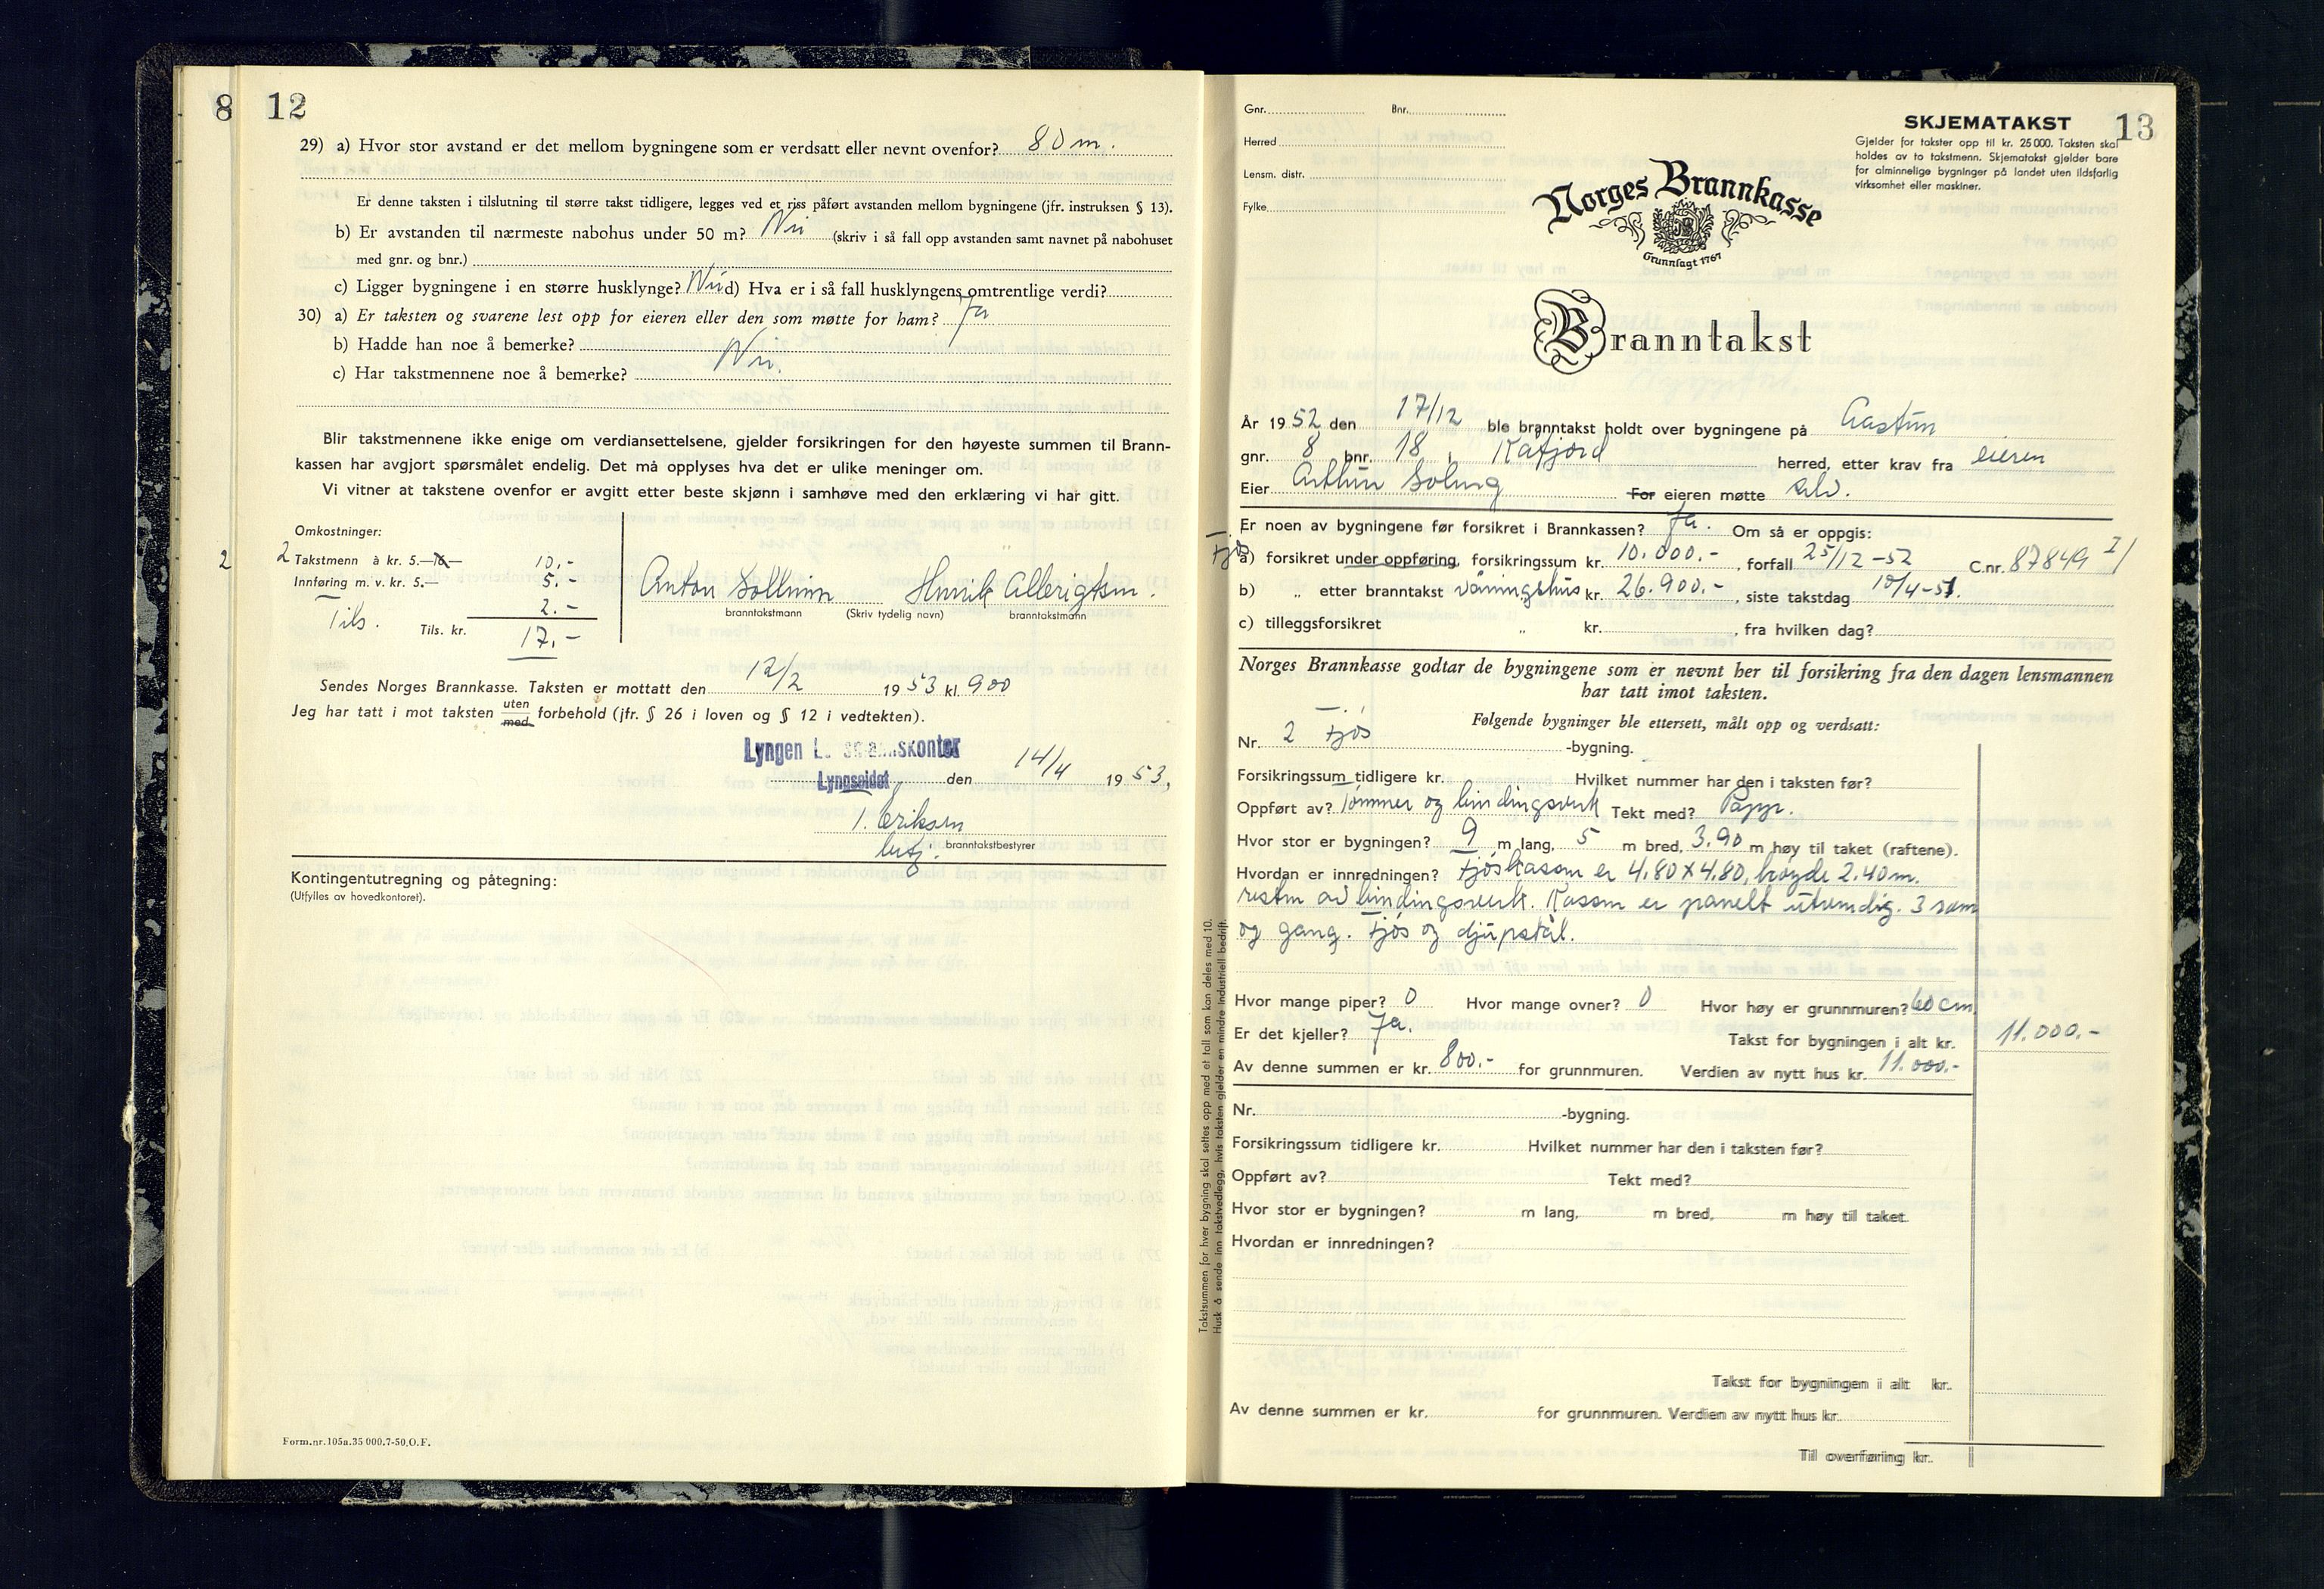 8 12
29) a) Hvor stor avstand er det mellom bygningene som er verdsatt eller nevnt ovenfor? 80 m.
Er denne taksten i tilslutning til større takst tidligere, legges ved et riss påført avstanden mellom bygningene (jfr. instruksen § 13).
b) Er avstanden til nærmeste nabohus under 50 m? Nei (skriv i så fall opp avstanden samt navnet på nabohuset
med gnr. og bnr.)
c) Ligger bygningene i en større husklynge? Nei d) Hva er i så fall husklyngens omtrentlige verdi?
30) a) Er taksten og svarene lest opp for eieren eller den som møtte for ham? Ja
b) Hadde han noe å bemerke?
Nei.
c) Har takstmennene noe å bemerke?
Blir takstmennene ikke enige om verdiansettelsene, gjelder forsikringen for den høyeste summen til Brann-
kassen har avgjort spørsmålet endelig. Det må opplyses hva det er ulike meninger om.
Vi vitner at takstene ovenfor er avgitt etter beste skjønn i samhøve med den erklæring vi har gitt.
Omkostninger:
2 2 Takstmenn à kr. 5.—10.— 10.-
Innføring m. v. kr. 5.— 5.-
2.-
Tils. Tils. kr. 17.-
Anton Sollum Henrik Albrigtsen.
branntakstmann (Skriv tydelig navn) branntakstmann
Sendes Norges Brannkasse. Taksten er mottatt den 12/2 1953 kl. 900
Jeg har tatt i mot taksten uten med forbehold (jfr. § 26 i loven og § 12 i vedtekten).
Lyngen L skontor
Lyngseidet, den 14/4 1953,
Eriksen
betj. branntakstbestyrer
Kontingentutregning og påtegning:
(Utfylles av hovedkontoret).
Form.nr.105a.35 000.7-50.O.F.
13
Gnr. Bnr.
Herred
Lensm. distr.
Fylke
SKJEMATAKST
Gjelder for takster opp til kr. 25 000. Taksten skal
holdes av to takstmenn. Skjematakst gjelder bare
for alminnelige bygninger på landet uten ildsfarlig
virksomhet eller maskiner.
Norges Brannkasse
Grunnlagt 1767
Branntakst
År 1952 den 17/12 ble branntakst holdt over bygningene på Aastun
gnr. 8 bnr. 18, Kåfjord herred, etter krav fra eieren
Eier Arthur Solvng For eieren møtte selv.
Er noen av bygningene før forsikret i Brannkassen? Ja. Om så er oppgis:
Fjøs a) forsikret under oppføring, forsikringssum kr. 10.000.-, forfall 25/12-52 C.nr. 87849 I/
b) „ etter branntakst våningshus kr. 26.900.-, siste takstdag 10/4-51.
c) tilleggsforsikret „ kr. , fra hvilken dag?
Norges Brannkasse godtar de bygningene som er nevnt her til forsikring fra den dagen lensmannen
har tatt imot taksten.
Følgende bygninger ble ettersett, målt opp og verdsatt:
Nr. 2 Fjøs -bygning.
Forsikringssum tidligere kr. Hvilket nummer har den i taksten før?
Oppført av? Tømmer og bindingsverk Tekt med? Papp.
Hvor stor er bygningen? 9 m lang, 5 m bred, 3.90 m høy til taket (raftene).
Hvordan er innredningen? Fjøskassen er 4.80 X 4.80, høyde 2.40 m.
resten av bindingsverk. Kassen er panelt utvendig. 3 rom
og gang. Fjøs og djupstål.
Hvor mange piper? 0 Hvor mange ovner? 0 Hvor høy er grunnmuren? 60 cm
Er det kjeller? Ja. Takst for bygningen i alt kr. 11.000.-
Av denne summen er kr. 800.- for grunnmuren. Verdien av nytt hus kr. 11.000.-
Nr. -bygning.
Forsikringssum tidligere kr. Hvilket nummer har den i taksten før?
Oppført av? Tekt med?
Hvor stor er bygningen? m lang, m bred, m høy til taket
Hvordan er innredningen?
Takst for bygningen i alt kr.
Av denne summen er kr. for grunnmuren. Verdien av nytt hus kr.
Til overføring kr.
Takstsummen for hver bygning skal settes opp med et tall som kan deles med 10.
Husk å sende inn takstvedlegg, hvis taksten gjelder en mindre industriell bedrift.